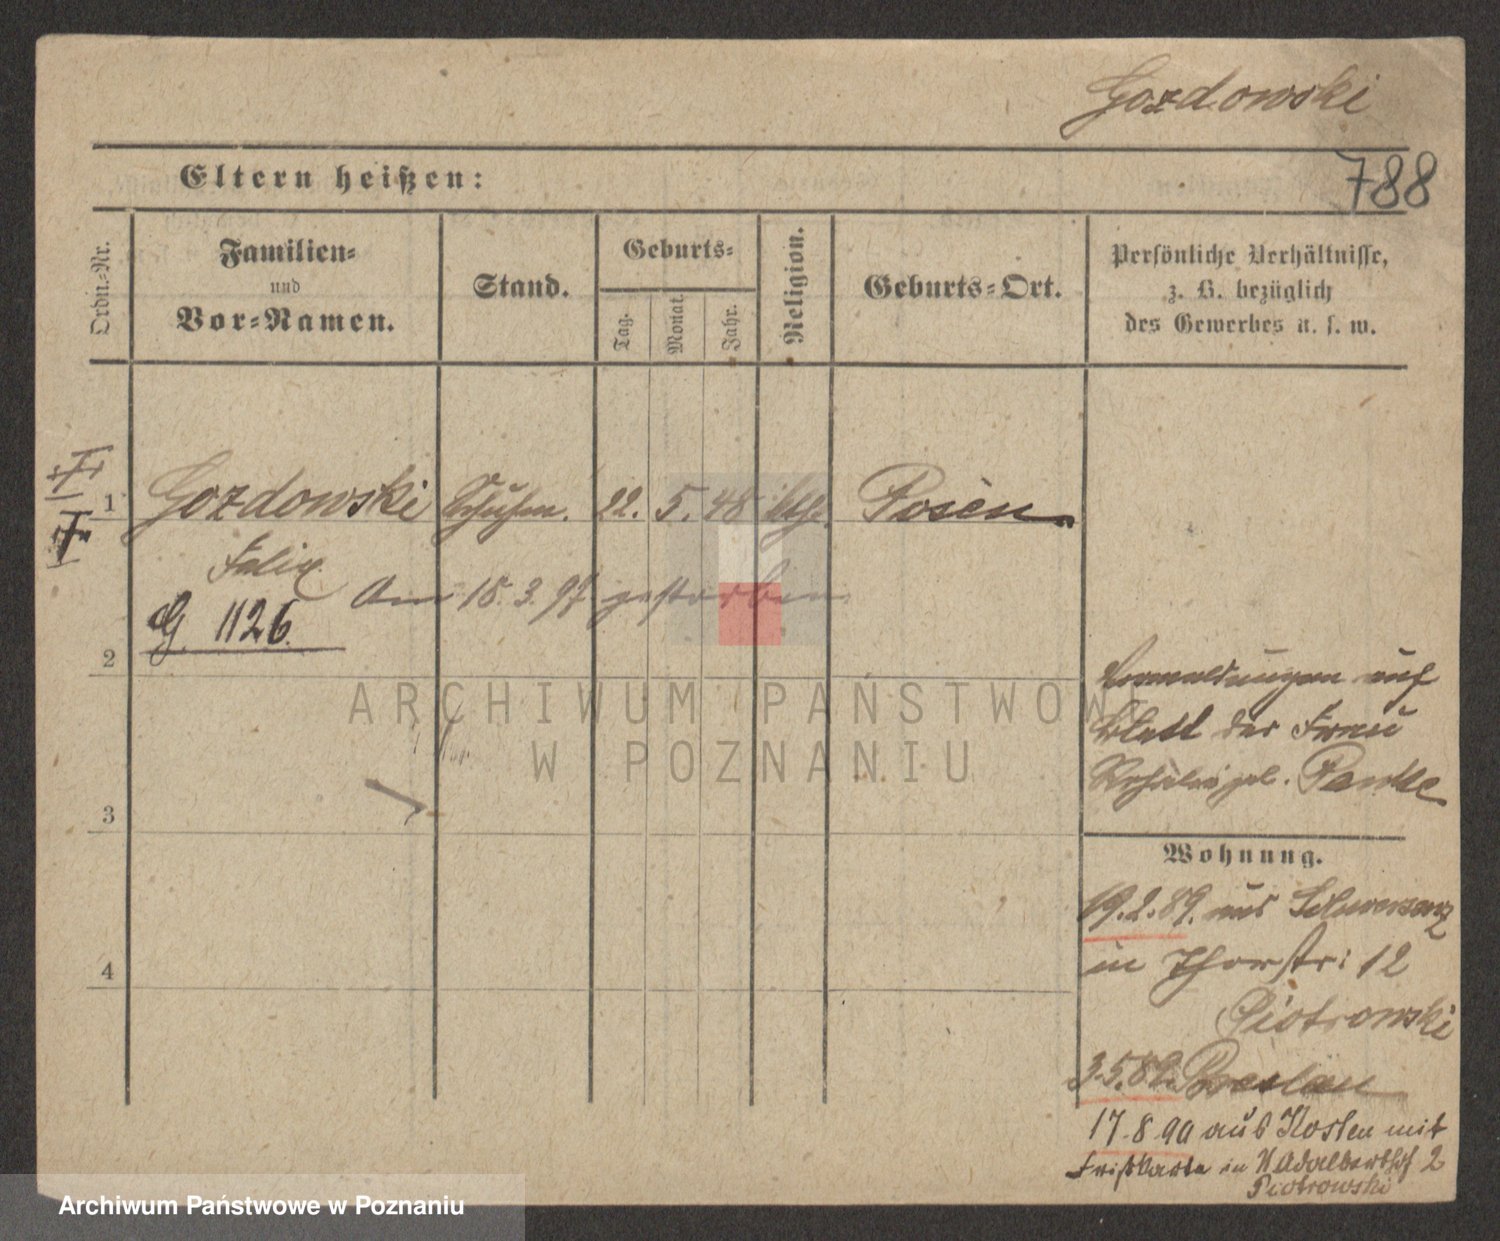 Gozdowski
788
Eltern heißen:
Ordn.-Nr.
Familien-
und
Vor-Namen.
Stand.
Geburts-
Tag.
Monat.
Jahr.
Religion.
Geburts-Ort.
Persönliche Verhältnisse,
z. B. bezüglich
des Gewerbes u. s. w.
1 Gozdowski Schuhm. 22. 5. 48 kth. Posen
Felix
Am 18. 3. 97 gestorben
G 1126
2
auf
Blatt der Frau
3
Wohnung.
19.2.89. aus Schwersenz
in Thorstr: 12
4
Piotrowski
3.5.89. Breslau
17.8.90 aus Kosten mit
in N Adalberthof 2
Piotrowski
ARCHIWUM PAŃSTWOWE
W POZNANIU
Archiwum Państwowe w Poznaniu